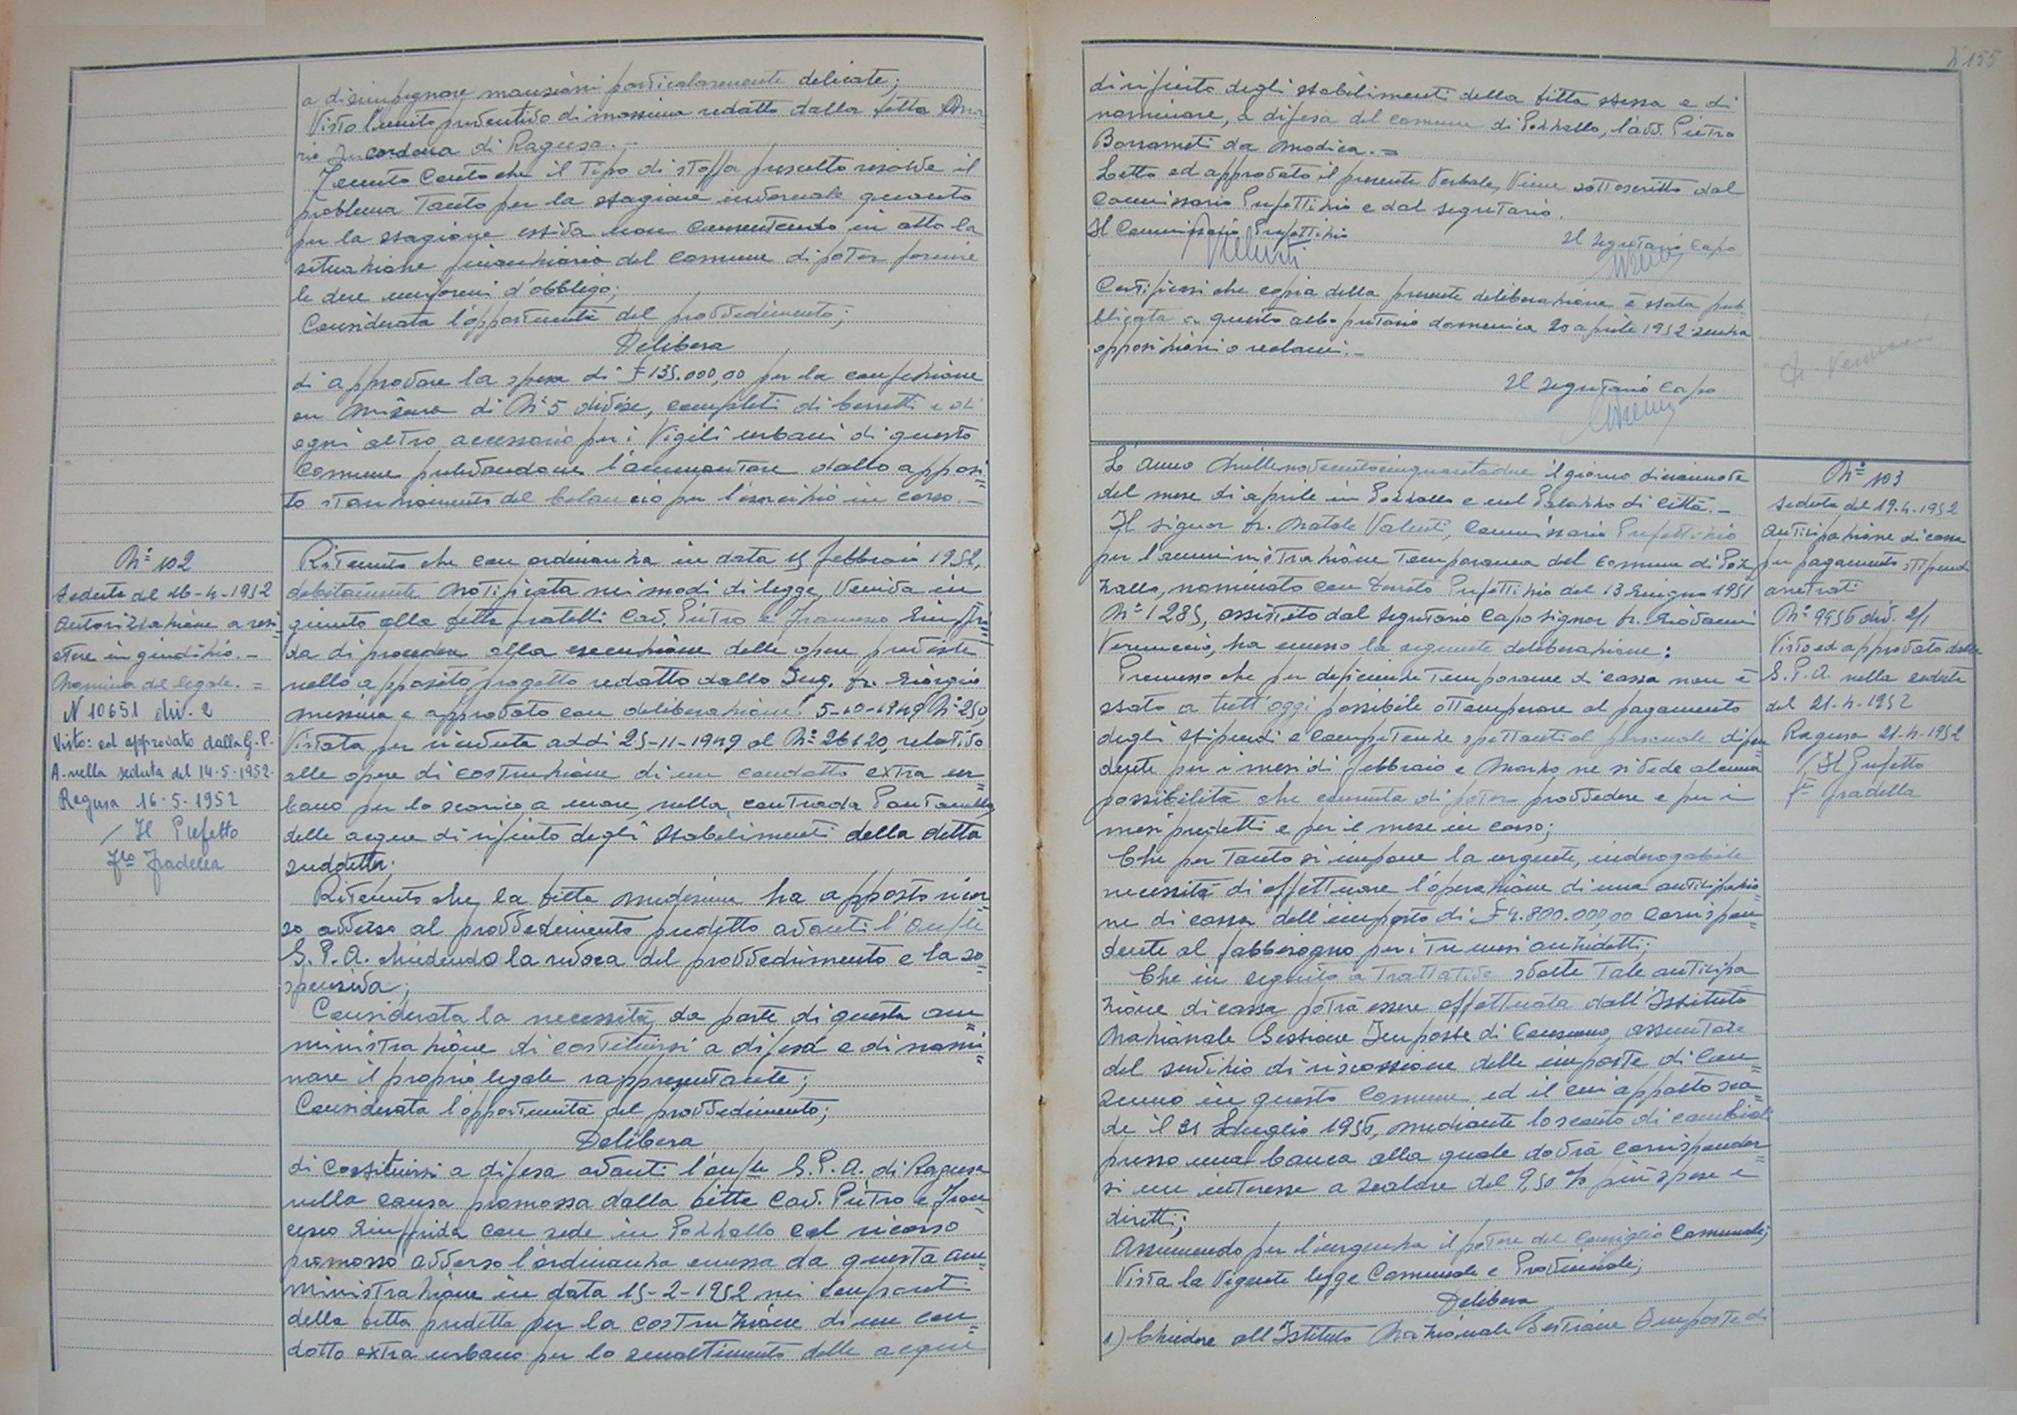 a disimpegnare mansioni particolarmente delicate;
Visto l'unito preventivo di massima redatto dalla ditta
cordova di Ragusa.-
Tenuto conto che il tipo di stoffa prescelto risolve il
problema tanto per la stagione invernale quanto
per la stagione estiva non consentendo in atto la
situazione finanziaria del comune di poter fornire
le due uniformi d'obbligo;
Considerata l'opportunità del provvedimento;
Delibera
di approvare la spesa di £ 135.000,00 per la confezione
su misura di N° 5 divise, completi di berretti e di
ogni altro accessorio per i Vigili urbani di questo
Comune prelevandone l'ammontare dallo apposi=
to stanziamento del bilancio per l'esercizio in corso.-
N° 102
Seduta del 16-4-1952
Autorizzazione a resi=
stere in giudizio.-
Nomina del legale.=
N 10651 div. 2
Visto: ed approvato dalla G.P.
A. nella seduta del 14-5-1952.
Ragusa 16-5-1952
Il Prefetto
F.to Gradella
Ritenuto che con ordinanza in data 15 febbraio 1952,
debitamente notificata nei modi di legge, veniva in
giunto alla ditta fratelli Cav. Pietro e Francesco Giuffri=
da di procedere alla esecuzione delle opere previste
nello apposito progetto redatto dallo Ing. Dr. Giorgio
Messina e approvato con deliberazione 5-10-1949 N° 250,
Vistata per ricevuta addì 25-11-1949 al N° 26120, relativo
alle opere di costruzione di un condotto extra ur=
bano per lo scarico a mare, nella contrada Pantanelli,
delle acque di rifiuto degli stabilimenti della ditta
suddetta;
Ritenuto che la ditta medesima ha apposto ricor=
so avverso al provvedimento predetto avanti l'On/le
G.P.A. chiedendo la revoca del provvedimento e la so=
spensiva;
Considerata la necessità da parte di questa am=
ministrazione di costituirsi a difesa e di nomi=
nare il proprio legale rappresentante;
Considerata l'opportunità del provvedimento;
Delibera
di costituirsi a difesa avanti l'on/le G.P.A. di Ragusa
nella causa promossa dalla ditta Cav. Pietro e Fran=
cesco Giuffrida con sede in Pozzallo col ricorso
promosso avverso l'ordinanza emessa da questa am=
ministrazione in data 15-2-1952 nei confronti
della ditta predetta per la costruzione di un con=
dotto extra urbano per lo smaltimento delle acque
155
di rifiuto degli stabilimenti della ditta stessa e di
nominare, a difesa del comune di Pozzallo, l'avv. Pietro
Borrometi da Modica.=
Letto ed approvato il presente verbale, viene sottoscritto dal
Commissario Prefettizio e dal segretario.
Il Commissario Prefettizio
Il Segretario Capo
Certificasi che copia della presente deliberazione è stata pub=
blicata a questo albo pretorio domenica 20 aprile 1952 senza
opposizioni o reclami.-
Il Segretario Capo
N° 103
Seduta del 19-4-1952
Anticipazione di cassa
per pagamento stipendi
arretrati
N° 9956 div. 2/1
Visto ed approvato dalla
G.P.A. nella seduta
del 21-4-1952
Ragusa 21-4-1952
Il Prefetto
F.to Gradella
L'anno millenovecentocinquantadue il giorno diciannove
del mese di aprile in Pozzallo e nel Palazzo di Città.-
Il signor Dr. Natale Valenti, Commissario Prefettizio
per l'amministrazione temporanea del comune di Poz=
zallo, nominato con Decreto Prefettizio del 13 Giugno 1951
N° 1285, assistito dal segretario capo signor Dr. Giovanni
Vernuccio, ha emesso la seguente deliberazione:
Premesso che per deficienze temporanee di cassa non è
stato a tutt'oggi possibile ottemperare al pagamento
degli stipendi e competenze spettanti al personale dipen=
dente per i mesi di febbraio e Marzo ne si vede alcuna
possibilità che consenta di poter provvedere e per i
mesi predetti e per il mese in corso;
Che per tanto si impone la urgente, inderogabile
necessità di effettuare l'operazione di una anticipazio=
ne di cassa dell'importo di £ 4.800.000,00 corrispon=
dente al fabbisogno per i tre mesi anzidetti;
Che in seguito a trattative svolte tale anticipa
zione di cassa potrà essere effettuata dall'Istituto
Nazionale Gestione Imposte di Consumo, assuntore
del servizio di riscossione delle imposte di con=
sumo in questo Comune ed il cui appalto sca=
de il 31 Luglio 1956, mediante lo sconto di cambiali
presso una banca alla quale dovrà corrisponder=
si un interesse a scalare del 9,50 % più spese e
diritti;
Assumendo per l'urgenza il potere del Consiglio Comunale;
Vista la vigente legge Comunale e Provinciale;
Delibera
1) Chiedere all'Istituto Nazionale Gestione Imposte di